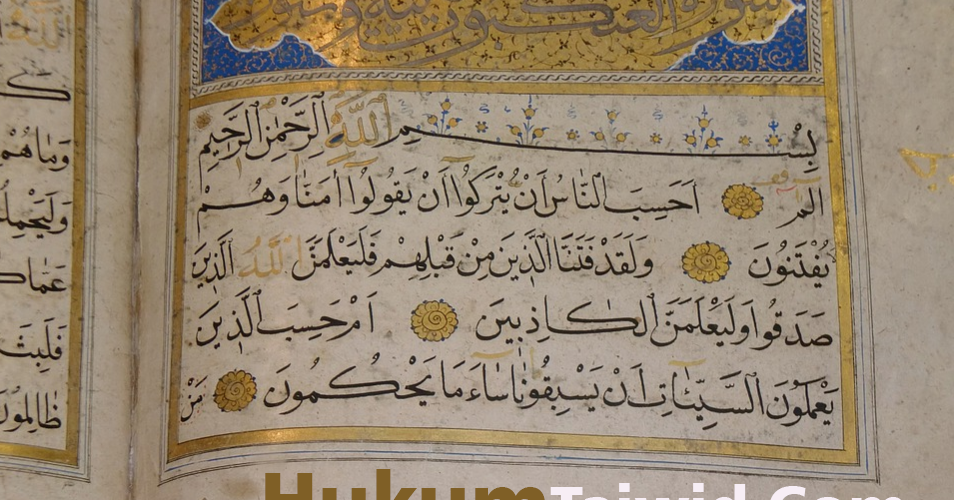 سورة العنكبوت
بسم الله الرحمن الرحيم
الم احسب الناس ان يتركوا ان يقولوا امنا وهم
يفتنون ولقد فتنا الذين من قبلهم فليعلمن الله الذين
صدقوا وليعلمن الكاذبين ام حسب الذين
يعملون السيئات ان يسبقونا ساء ما يحكمون من
وماهم
عما
فلبث
ظالمون
HukumTajwid.Com